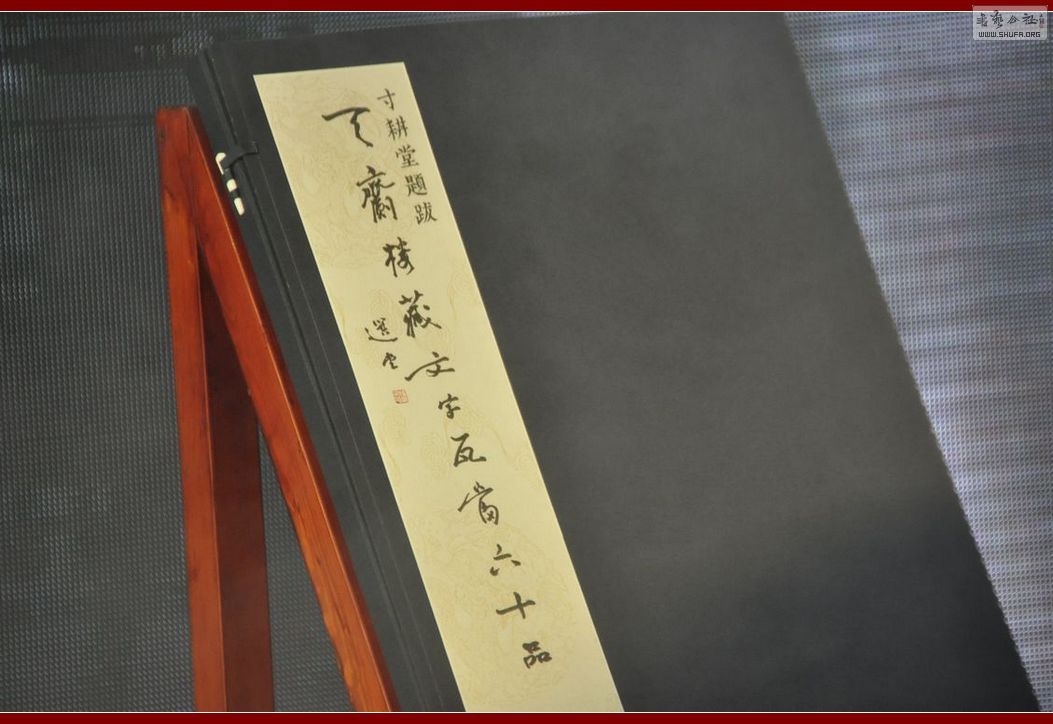 寸耕堂題跋
天齊楼藏文字瓦當六十品
選堂
書藝公社
WWW.SHUFA.ORG